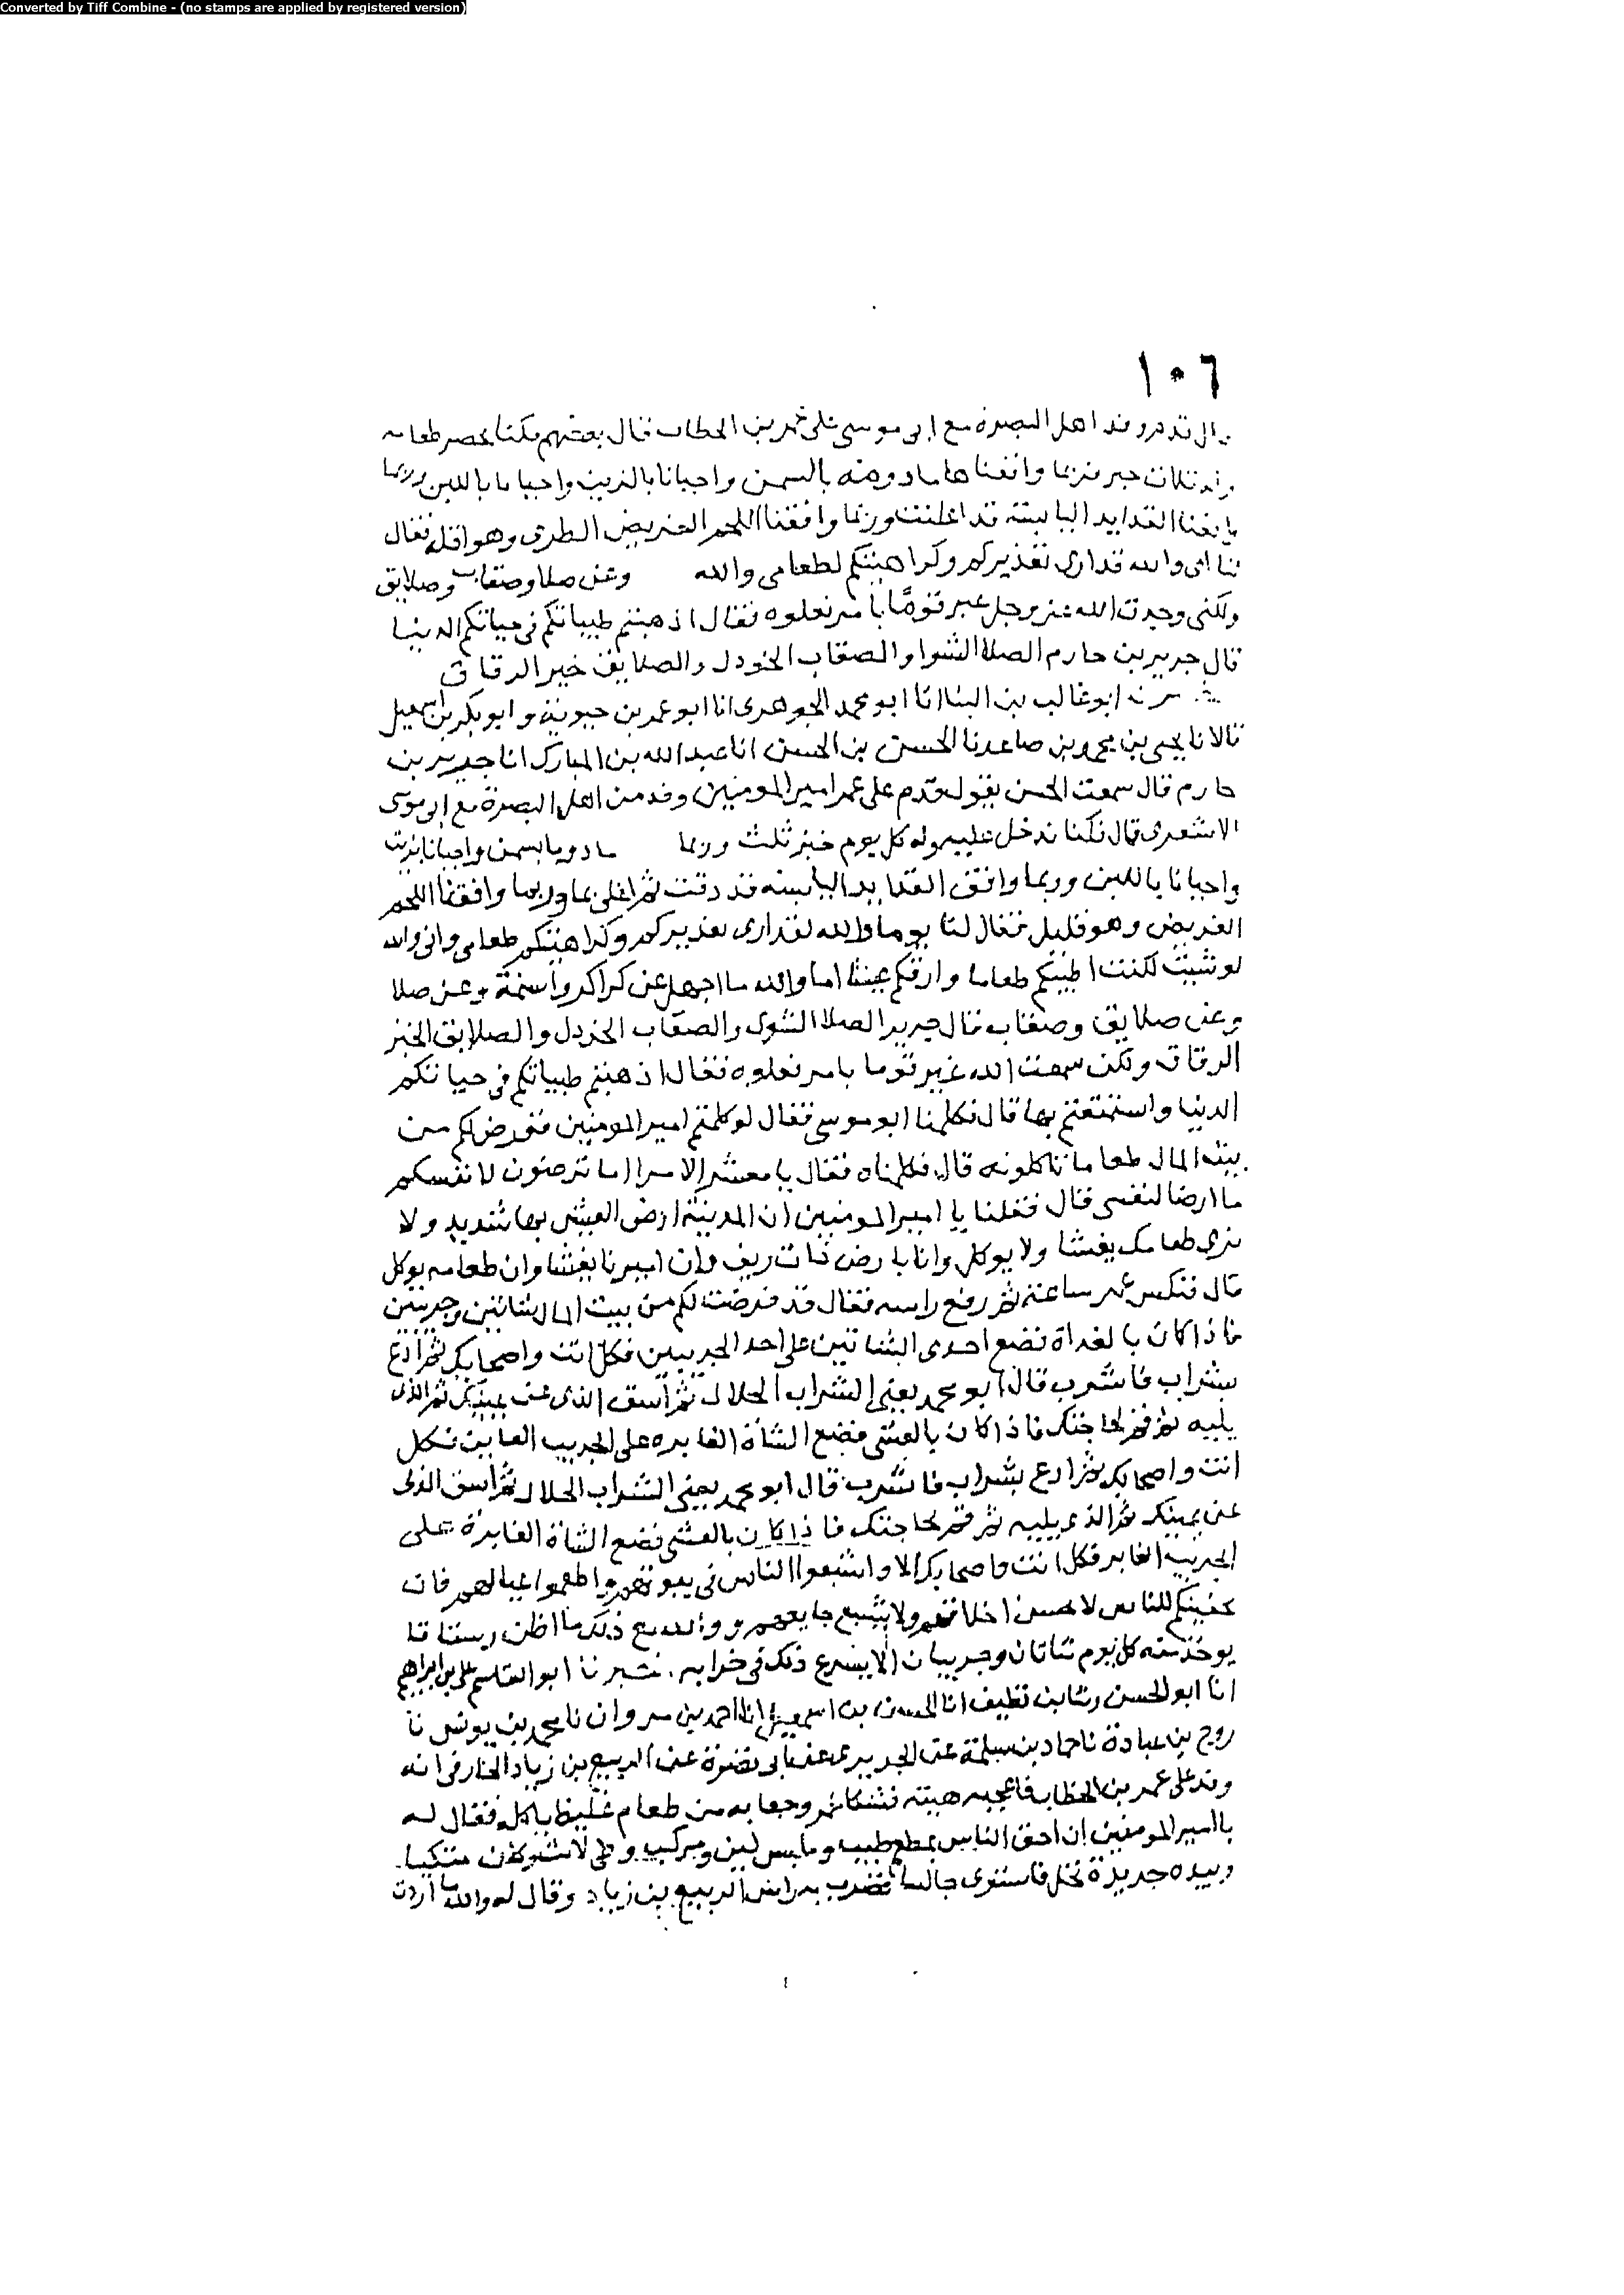 Converted by Tiff Combine - (no stamps are applied by registered version)
١٠٦
قال قدم وفد اهل البصرة مع ابى موسى على عمر بن الخطاب فقال بعضهم فكنا نحضر طعامه
وافقنا مادومة بالسمن واحيانا بالزيت واحيانا باللبن وربما
وافقنا القدايد اليابسة قد اغلنت وربما وافقنا اللحم الغريض الطرى وهو اقله فقال
لنا انى والله قد ارى تقذيركم وكراهيتكم لطعامى والله وعن صلا وصقاب وصلايق
ولكنى وجدت الله عز وجل عير قومًا بامر فعلوه فقال اذهبتم طيباتكم فى حياتكم الدنيا
قال جرير بن حازم الصلا الشوا والصقاب الخردل والصلايق خبز الرقاق
ابو غالب بن البنا انا ابو محمد الجوهرى انا ابو عمر بن حيوية وابو بكر بن اسمعيل
قالا نا يحيى بن محمد بن صاعد نا الحسين بن الحسن انا عبد الله بن المبارك انا جرير بن
حازم قال سمعت الحسن يقول قدم على عمر امير المومنين وفد من اهل البصرة مع ابى موسى
الاشعرى قال فكنا ندخل عليه وله كل يوم خبز ثلث وربما مادوما بسمن واحيانا بزيت
واحيانا باللبن وربما وافق القدايد اليابسه قد دقت ثم اغلى بماء وربما وافقنا اللحم
الغريض وهو قليل فقال لنا يوما والله لقد ارى تعذيركم وكراهيتكم طعامى وانى والله
لو شيت لكنت اطيبكم طعاما وارقكم عيشا اما والله ما اجهل عن كراكر واسنمة وعن صلا
وعن صلايق وصقاب قال جرير الصلا الشوى والصقاب الخردل والصلايق الخبز
الرقاق ولكن سمعت الله عير قوما بامر فعلوه فقال اذهبتم طيباتكم فى حياتكم
الدنيا واستمتعتم بها قال فكلمنا ابو موسى فقال لو كلمتم امير المومنين ففرض لكم من
بيت المال طعاما تاكلونه قال فكلمناه فقال يا معشر الامرا اما ترضون لانفسكم
ما ارضا لنفسى قال فقلنا يا امير المومنين ان المدينة ارض العيش بها شديد ولا
نرى طعامك يغشا ولا يوكل وانا بارض ذات ريف وان اميرنا يغشا وان طعامه يوكل
قال فنكس عمر ساعة ثم رفع راسه فقال قد فرضت لكم من بيت المال شاتين وجريبين
فاذا كان بالغداة فضع احدى الشاتين على احد الجريبين فكل انت واصحابك ثم ادع
بشراب فاشرب قال ابو محمد يعنى الشراب الحلال ثم اسق الذى عن يمينك ثم الذى
يليه ثم قم لحاجتك فاذا كان بالعشى فضع الشاة الغابره على الجريب الغابر فكل
انت واصحابك ثم ادع بشراب فاشرب قال ابو محمد يعنى الشراب الحلال ثم اسق الذى
عن يمينك ثم الذى يليه ثم قم لحاجتك فاذا كان بالعشى فضع الشاة الغابرة على
الجريب الغابر فكل انت واصحابك الا واشبعوا الناس فى بيوتهم واطعموا عيالهم فان
للناس لا يحسن اخلاقهم ولا يشبع جايعهم ووالله مع ذلك ما اظن رستاقا
يوخذ منه كل يوم شاتان وجريبان الا يسرع ذلك فى خرابه ابو القاسم على بن ابراهيم
انا ابو الحسن رشا بن نظيف انا الحسن بن اسمعيل انا احمد بن مروان نا محمد بن يونس نا
روح بن عبادة نا حماد بن سلمة عن الجريرى عن ابى نضرة عن الربيع بن زياد الحارثى انه
وفد على عمر بن الخطاب فاعجبه هيئته فشكا عمر وجعا به من طعام غليظ ياكله فقال له
يا امير المومنين ان احق الناس بمطعم طيب وملبس لين ومركب وطى لانت وكان متكيا
وبيده جريدة نخل فاستوى جالسا فضرب به راس الربيع بن زياد وقال له والله ما اردت